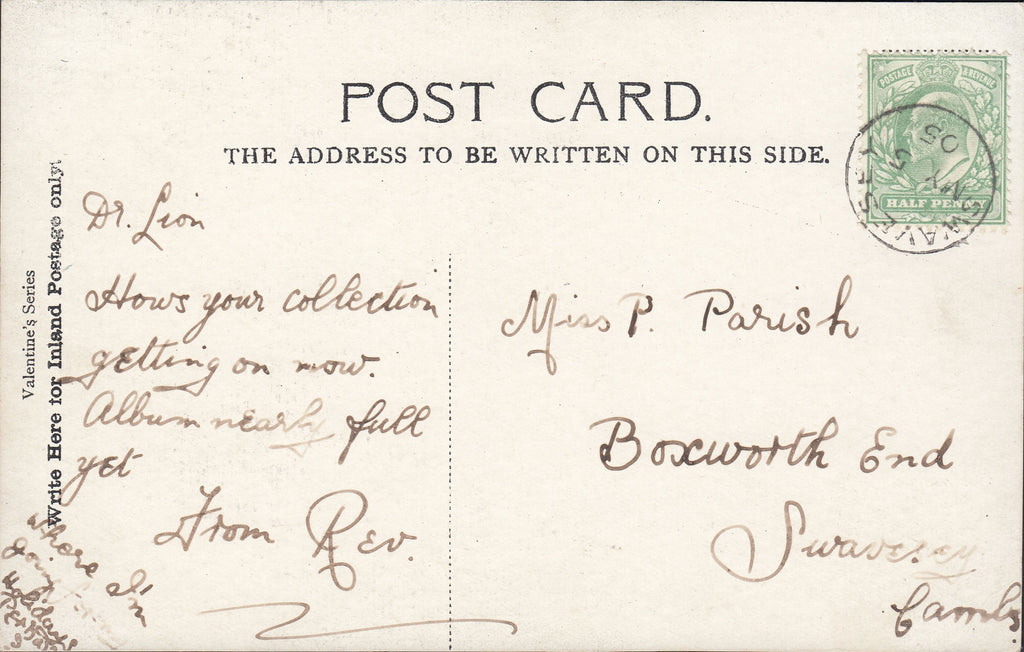 POST CARD.
THE ADDRESS TO BE WRITTEN ON THIS SIDE.
Valentine's Series
Write Here for Inland Postage only.
Dr. Lion
Hows your collection
getting on now.
Album nearly full
yet
From Rev.
where I'm
going for
Holidays
Miss P. Parish
Boxworth End
Swavesey
Cambs.
POSTAGE & REVENUE
HALF PENNY
SWAVESEY
MY 5
05